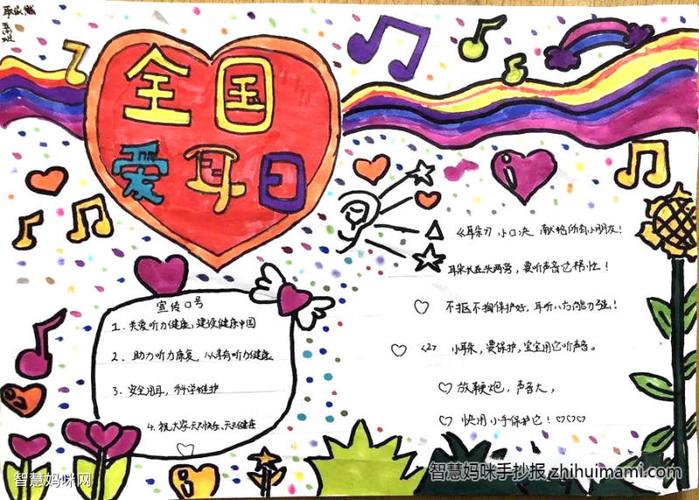 全国
爱耳日
宣传口号
1、关爱听力健康,建设健康中国
2、助力听力康复,
3、安全用耳,科学维护
4、祝大家天天快乐、天天健康
《耳朵》小口决 献给所有小朋友!
耳朵长在头两旁,要听声音它帮忙!
不抠不掏保护好,耳听八方能力强!
<2> 小耳朵,要保护,宝宝用它听声音。
放鞭炮,声音大,
快用小手保护它!
智慧妈咪网
智慧妈咪手抄报 zhihuimami.com